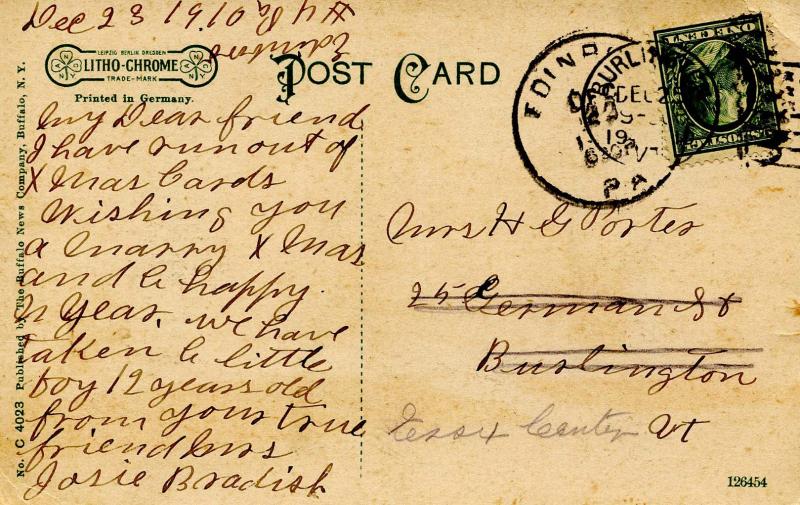 Dec 23 1910
Edinboro
LEIPZIG BERLIN DRESDEN
LITHO-CHROME
TRADE-MARK
Printed in Germany.
POST CARD
My Dear friend
I have run out of
X Mas Cards
Wishing you
a marry X Mas
and a happy
N Year. we have
taken a little
boy 12 years old
from your true
friend Mrs
Josie Bradish
EDINBORO
BURLIN
DEC 2
PA
ONE CENT
Mrs H G Porter
25 German St
Burlington
Essex Center Vt
No. C 4023 Published by The Buffalo News Company, Buffalo, N. Y.
126454